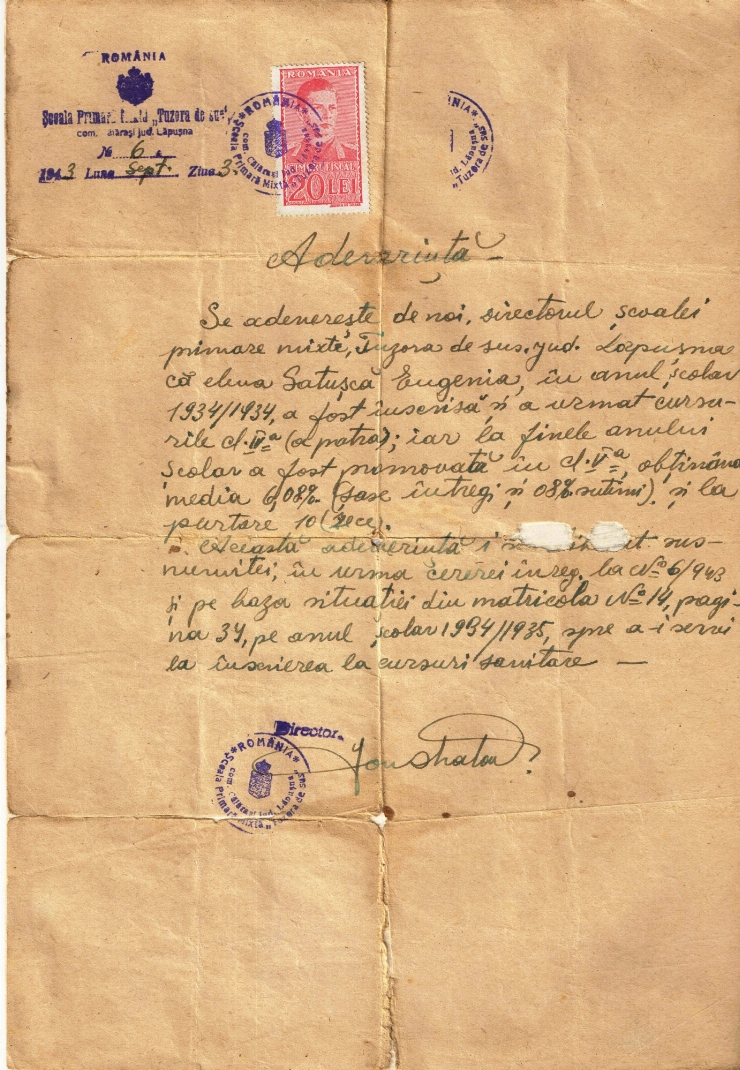 ROMÂNIA
Școala Primară Mixtă „Tuzora de sus"
com. Călărași jud. Lăpușna
№ 6
1943 Luna Sept. Ziua 3
ROMÂNIA
TIMBRU FISCAL
20 LEI
*ROMÂNIA*
com. Călărași jud. Lăpușna
Școala Primară Mixtă „Tuzora de sus"
NIA*
jud. Lăpușna
„Tuzora de sus"
Adeverință
Se adeverește de noi, directorul școalei
primare mixte, Tuzora de sus. jud. Lăpușna
că eleva Satușcă Eugenia, în anul școlar
1934/1934, a fost înscrisă și a urmat cursu-
rile cl. IVa (a patra); iar la finele anului
școlar a fost promovată în cl. Va, obținând
media 6,08% (șase întregi și 08% sutimi) și la
purtare 10 (zece).
Această adeverință i s- sus-
numitei, în urma cererei înreg. la No 6/943
și pe baza situației din matricola No 14, pagi-
na 34, pe anul școlar 1934/1935, spre a-i servi
la înscrierea la cursuri sanitare —
Director,
*ROMÂNIA*
com. Călărași jud. Lăpușna
Școala Primară Mixtă „Tuzora de sus"